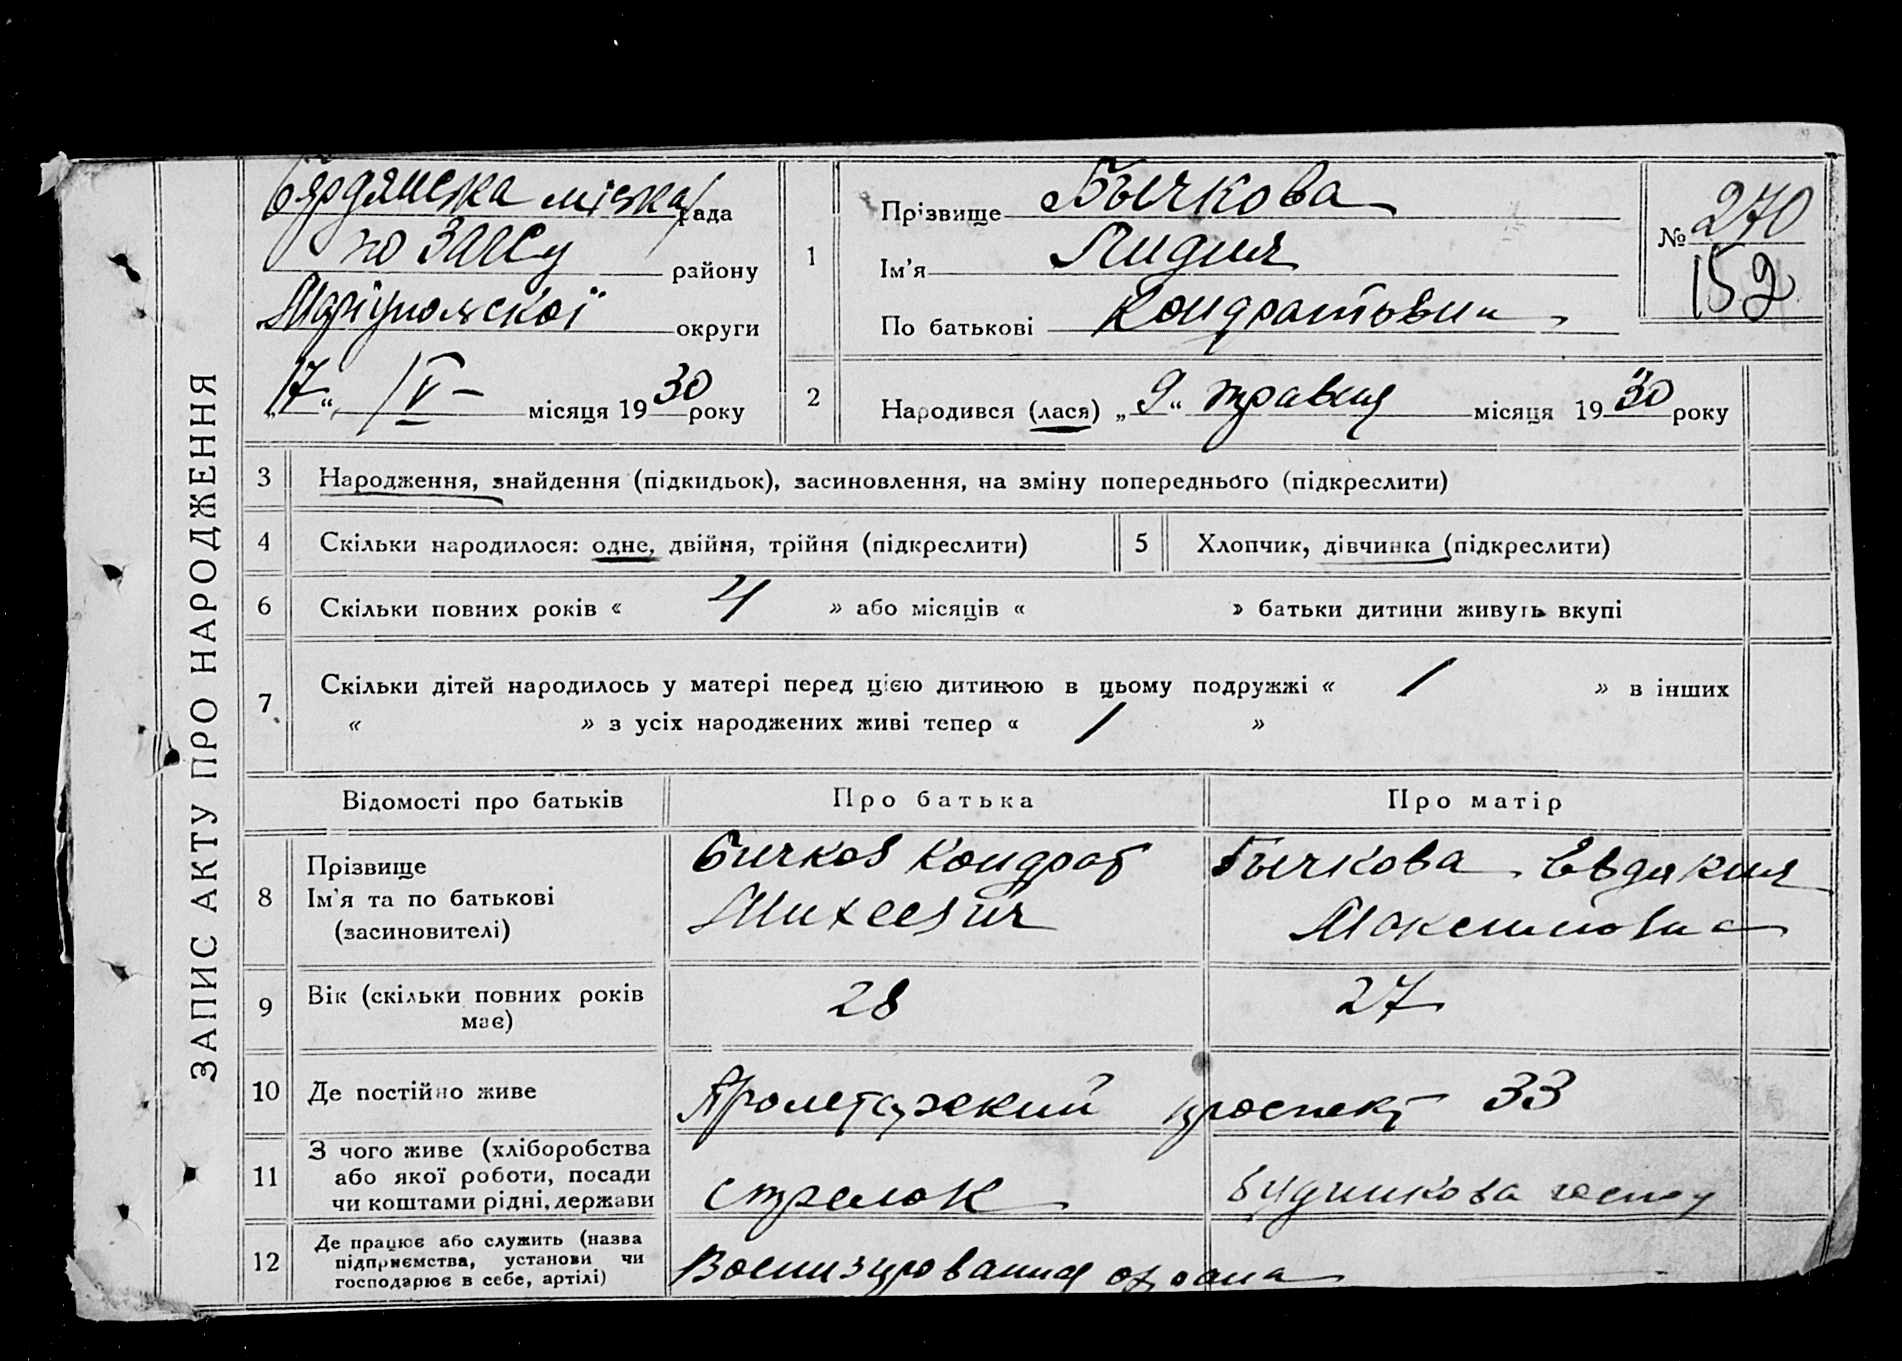 ЗАПИС АКТУ ПРО НАРОДЖЕННЯ
Бярдянська міська рада
по ЗАГСу району
Маріупольскої округи
„17“ IV – місяця 1930 року
1
Прізвище Бычкова
Ім'я Лидия
По батькові Кондратовна
№ 270
152
2
Народився (лася) „9“ травня місяця 1930 року
3 Народження, знайдення (підкидьок), засиновлення, на зміну попереднього (підкреслити)
4 Скільки народилося: одне, двійня, трійня (підкреслити)
5 Хлопчик, дівчинка (підкреслити)
6 Скільки повних років « 4 » або місяців « » батьки дитини живуть вкупі
7 Скільки дітей народилось у матері перед цією дитиною в цьому подружжі « 1 » в інших
« » з усіх народжених живі тепер « 1 »
Відомості про батьків Про батька Про матір
8
Прізвище
Ім'я та по батькові
(засиновителі)
Бичков Кондрат
Михеевич
Бычкова Евдакия
Максимовна
9 Вік (скільки повних років
має)
28 27
10 Де постійно живе Пролетарский проспект 33
11
З чого живе (хліборобства
або якої роботи, посади
чи коштами рідні, держави
стрелок
12
Де працює або служить (назва
підприємства, установи чи
господарює в себе, артілі)
Военизированная охрана